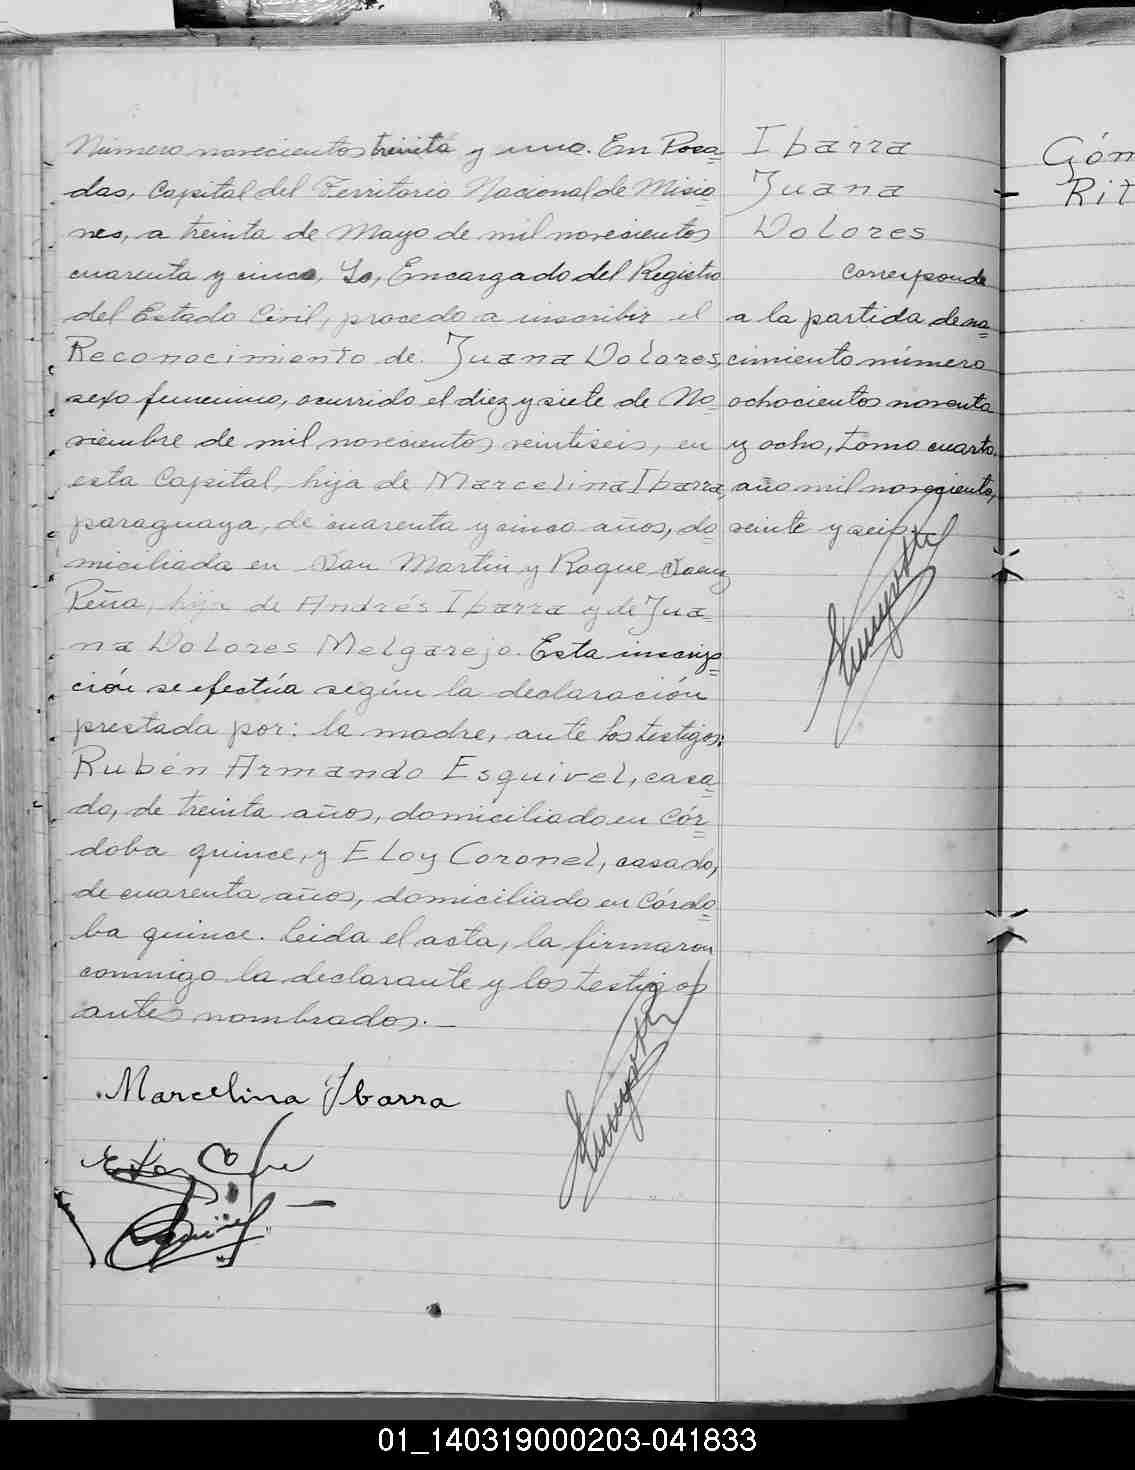 Número novecientos treinta y uno. En Posa=
das, Capital del Territorio Nacional de Misio
nes, a treinta de Mayo de mil novecientos
cuarenta y cinco, Yo, Encargado del Registro
del Estado Civil, procedo a inscribir el
Reconocimiento de Juana Dolores,
sexo femenino, ocurrido el diez y siete de No=
viembre de mil novecientos veintiseis, en
esta Capital, hija de Marcelina Ibarra,
paraguaya, de cuarenta y cinco años, do=
miciliada en San Martin y Roque Saenz
Peña, hija de Andrés Ibarra y de Jua=
na Dolores Melgarejo. Esta inscrip=
ción se efectúa según la declaración
prestada por: la madre, ante los testigos:
Rubén Armando Esquivel, casa=
do, de treinta años, domiciliado en Cór=
doba quince, y Eloy Coronel, casado,
de cuarenta años, domiciliado en Córdo=
ba quince. Leida el acta, la firmaron
conmigo la declarante y los testigos
antes nombrados.—
Marcelina Ibarra
Ibarra
Juana
Dolores
Corresponde
a la partida de na=
cimiento número
ochocientos noventa
y ocho, tomo cuarto,
año mil novecientos
veinte y seis
Góm
Rit
01_140319000203-041833